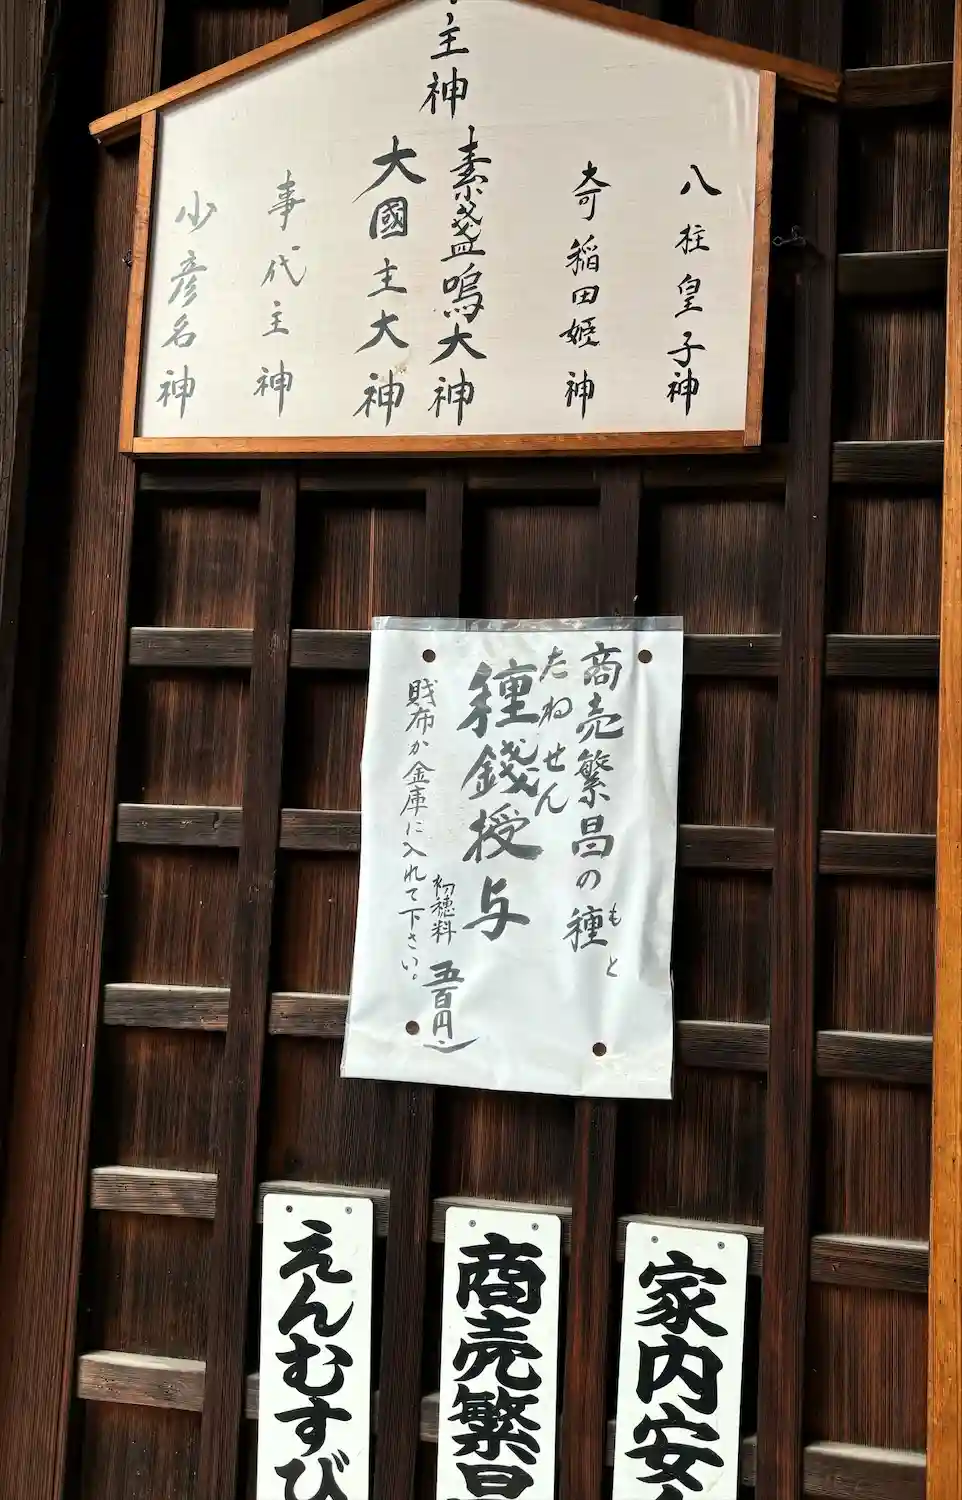 主神
八柱皇子神
奇稲田姫神
素盞嗚大神
大國主大神
事代主神
少彦名神
商売繁昌の種
もと
たねせん
種銭授与
初穂料 五百円
財布か金庫に入れて下さい。
家内安
商売繁昌
えんむすび